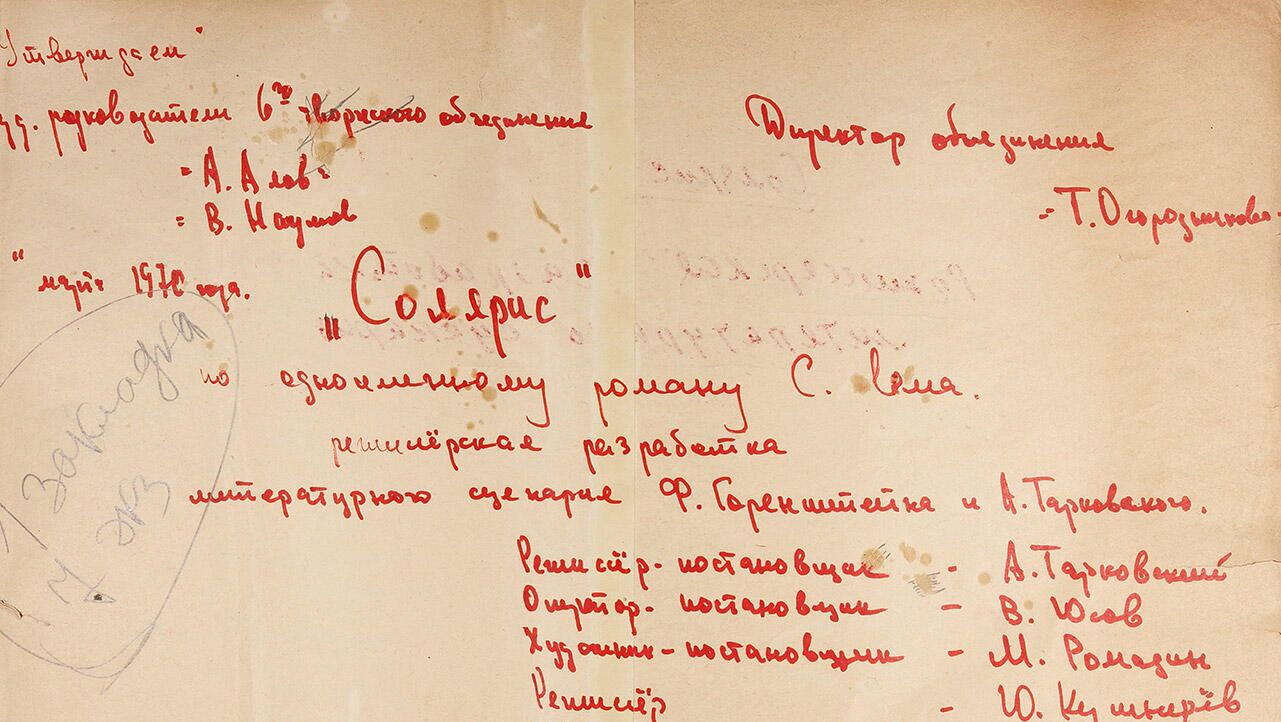 "Утверждаем"
худ. руководители 6го творческого объединения
= А. Алов =
= В. Наумов
" март 1970 года.
Директор объединения
= Т. Огородникова
„Солярис"
по одноименному роману С. Лема.
режиссёрская разработка
литературного сценария Ф. Горенштейна и А. Тарковского.
Режиссёр-постановщик - А. Тарковский
Оператор-постановщик - В. Юсов
Художник-постановщик - М. Ромадин
Режиссёр - Ю. Кушнерёв
Закладка
4 экз
Солярис
Режиссерская разработка
литературного сценария